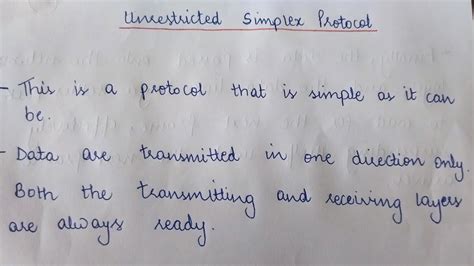 Unrestricted Simplex Protocol
- This is a protocol that is simple as it can
be.
- Data are transmitted in one direction only.
Both the transmitting and receiving layers
are always ready.